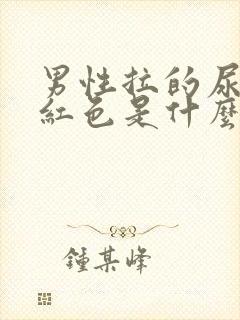 男性拉的尿
紅色是什麼
鍾某峰